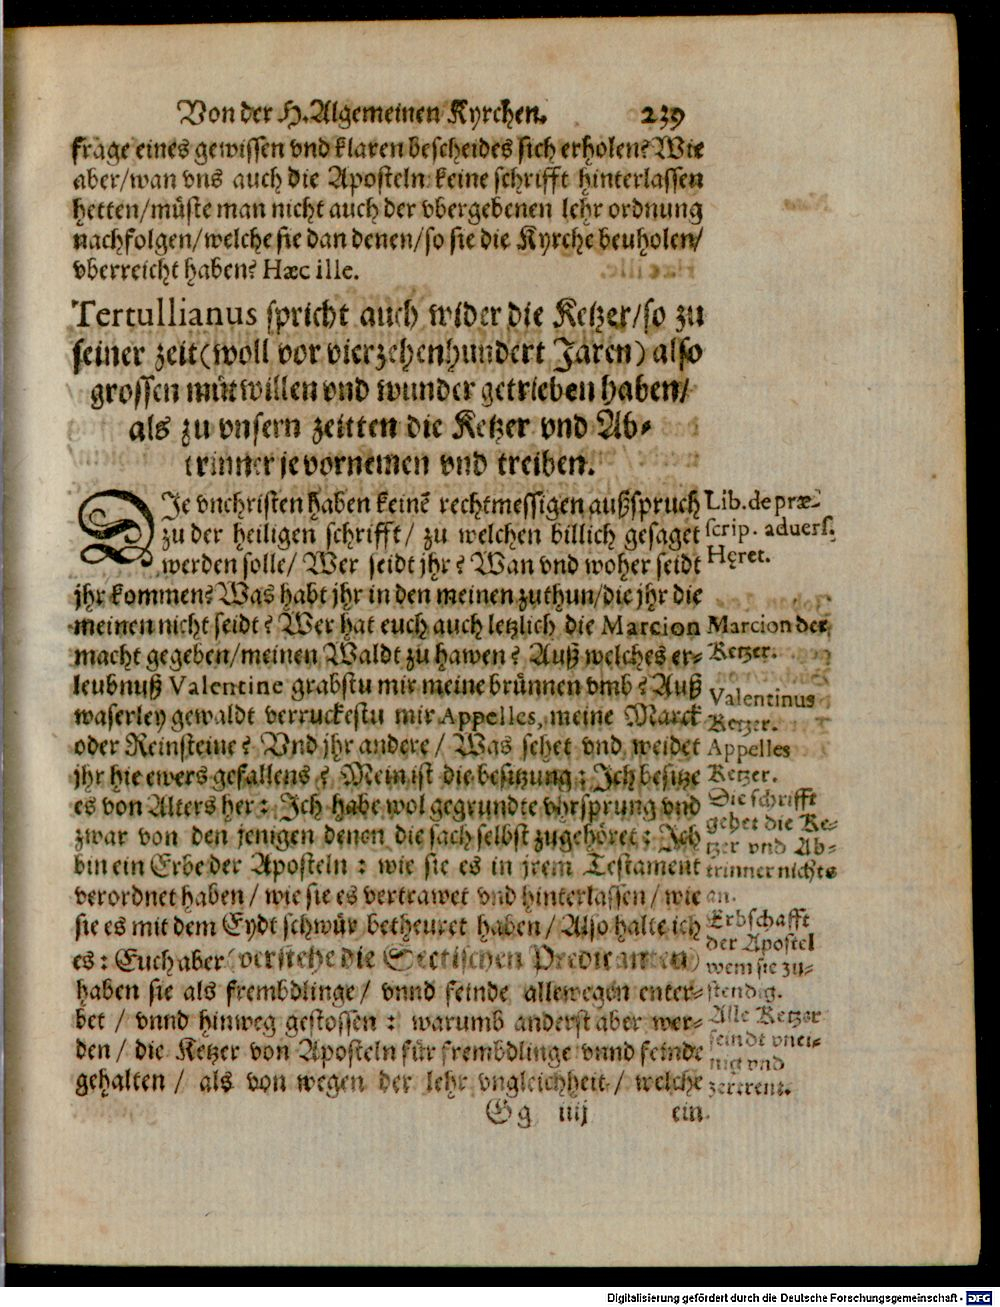 Von der H. Algemeinen Kyrchen. 239
frage eines gewissen vnd klaren bescheides sich erholen? Wie
aber/wan vns auch die Aposteln keine schrifft hinterlassen
hetten/müste man nicht auch der vbergebenen lehr ordnung
nachfolgen/welche sie dan denen/so sie die Kyrche beuholen/
vberreicht haben? Hæc ille.
Tertullianus spricht auch wider die Ketzer/so zu
seiner zeit (woll vor vierzehenhundert Jaren) also
grossen mütwillen vnd wunder getrieben haben/
als zu vnsern zeitten die Ketzer vnd Ab-
trinner je vornemen vnd treiben.
DIe vnchristen haben keinē rechtmessigen außspruch
zu der heiligen schrifft/ zu welchen billich gesaget
werden solle/ Wer seidt jhr? Wan vnd woher seidt
jhr kommen? Was habt jhr in den meinen zuthun/die jhr die
meinen nicht seidt? Wer hat euch auch letzlich die Marcion
macht gegeben/meinen Waldt zu hawen? Auß welches er-
leubnuß Valentine grabstu mir meine brünnen vmb? Auß
waserley gewaldt verruckestu mir Appelles, meine Marck
oder Reinsteine? Vnd jhr andere/ Was sehet vnd weidet
jhr hie ewers gefallens? Mein ist die besitzung: Ich besitze
es von Alters her: Ich habe wol gegrundte vhrsprung vnd
zwar von den jenigen denen die sach selbst zugehöret: Ich
bin ein Erbe der Aposteln: wie sie es in jrem Testament
verordnet haben/ wie sie es vertrawet vnd hinterlassen/ wie
sie es mit dem Eydt schwür betheuret haben/ Also halte ich
es: Euch aber (verstehe die Sectischen Predicanten)
haben sie als frembdlinge/ vnnd feinde allewegen enter-
bet/ vnnd hinweg gestossen: warumb anderst aber wer-
den/ die Ketzer von Aposteln für frembdlinge vnnd feinde
gehalten/ als von wegen der lehr vngleichheit/ welche
Gg iiij ein
Lib. de præ-
scrip. advers.
Hęret.
Marcion der
Ketzer.
Valentinus
Ketzer.
Appelles
Ketzer.
Die schrifft
gehet die Ke-
tzer vnd Ab-
trinner nichts
an.
Erbschafft
der Apostel
wem sie zu-
stendig.
Alle Ketzer
seindt vnei-
nig vnd
zertrent.
Digitalisierung gefördert durch die Deutsche Forschungsgemeinschaft - DFG